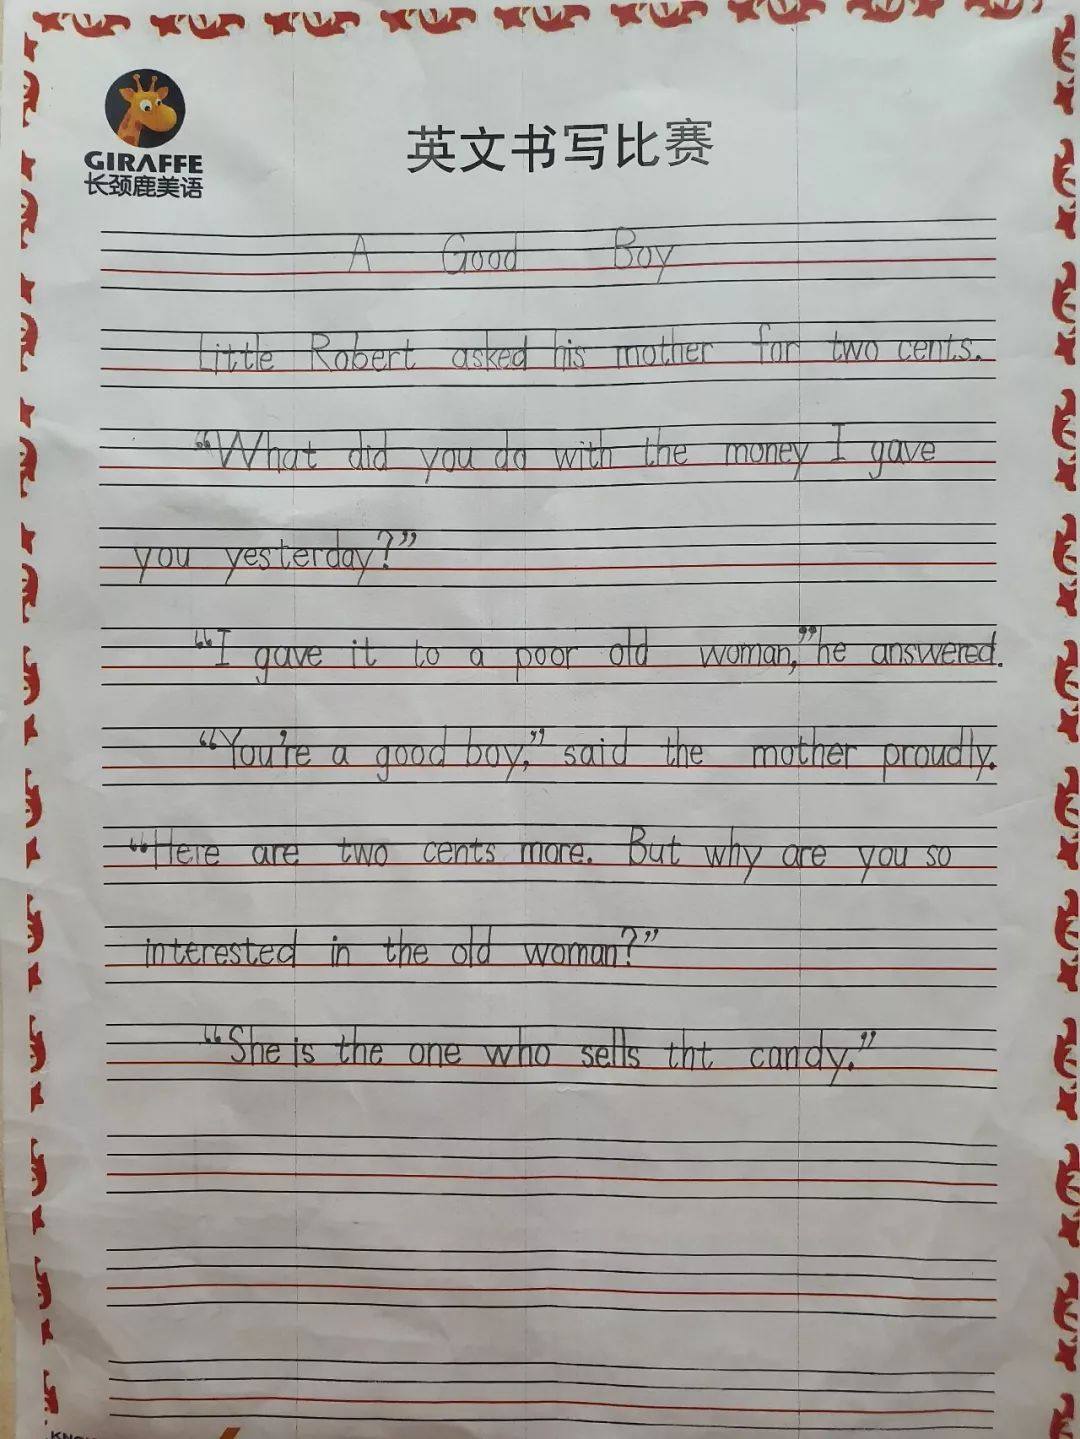 GIRAFFE
长颈鹿美语
英文书写比赛
A Good Boy
Little Robert asked his mother for two cents.
“What did you do with the money I gave
you yesterday?”
“I gave it to a poor old woman,”he answered.
“You're a good boy,” said the mother proudly.
“Here are two cents more. But why are you so
interested in the old woman?”
“She is the one who sells tht candy.”